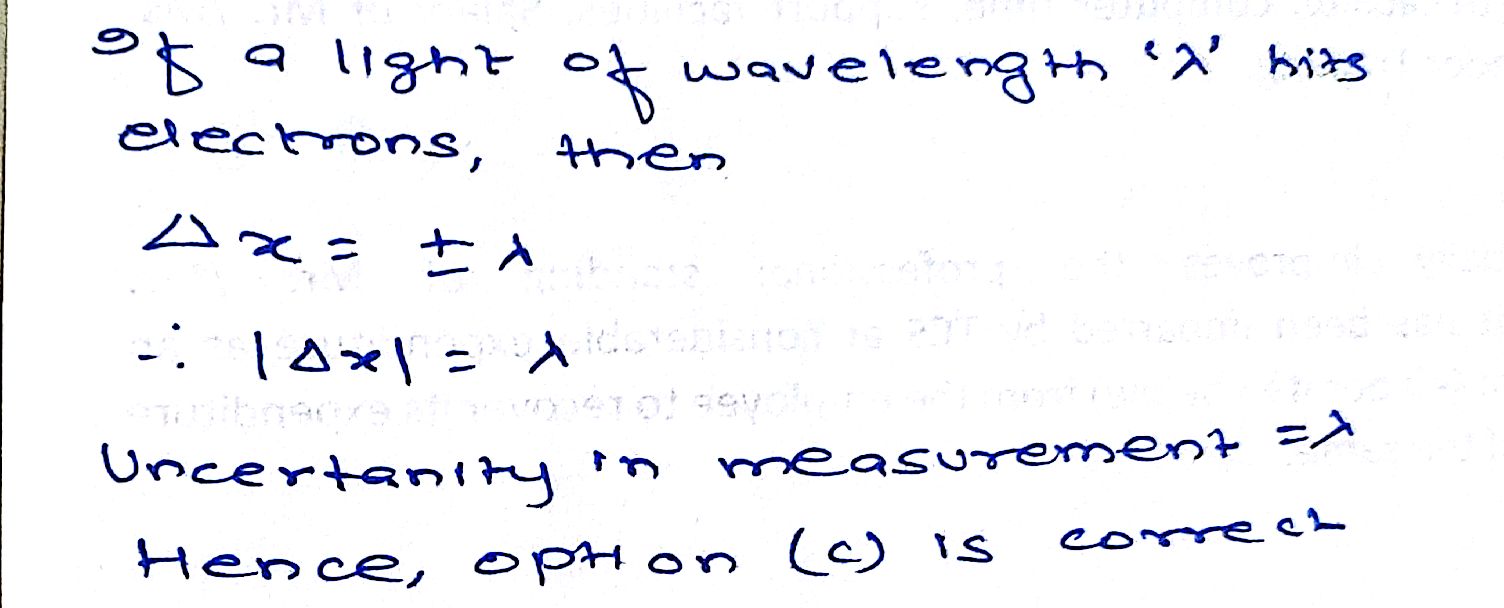 If a light of wavelength 'λ' hits
electrons, then
Δx = ± λ
∴ |Δx| = λ
Uncertanity in measurement = λ
Hence, option (c) is correct